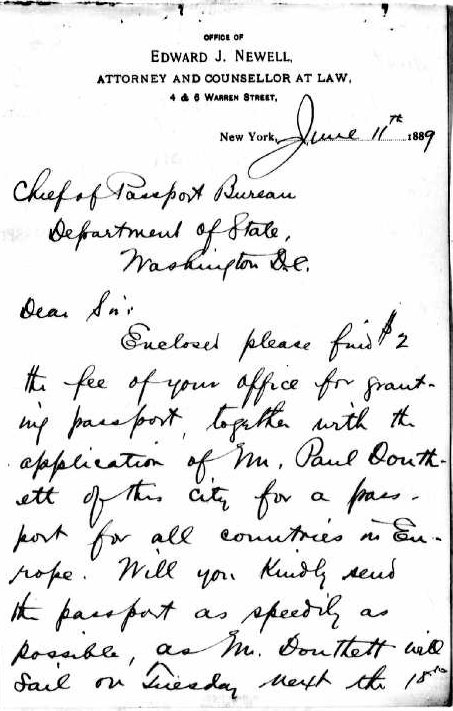 OFFICE OF
EDWARD J. NEWELL,
ATTORNEY AND COUNSELLOR AT LAW,
4 & 6 WARREN STREET,
New York, June 11th 1889
Chief of Passport Bureau
Department of State,
Washington D.C.
Dear Sir:
Enclosed please find $2
the fee of your office for grant-
ing passport, together with the
application of Mr. Paul Douth-
ett of this city for a pass-
port for all countries in Eu-
rope. Will you kindly send
the passport as speedily as
possible, as Mr. Douthett will
sail on Tuesday next the 18th